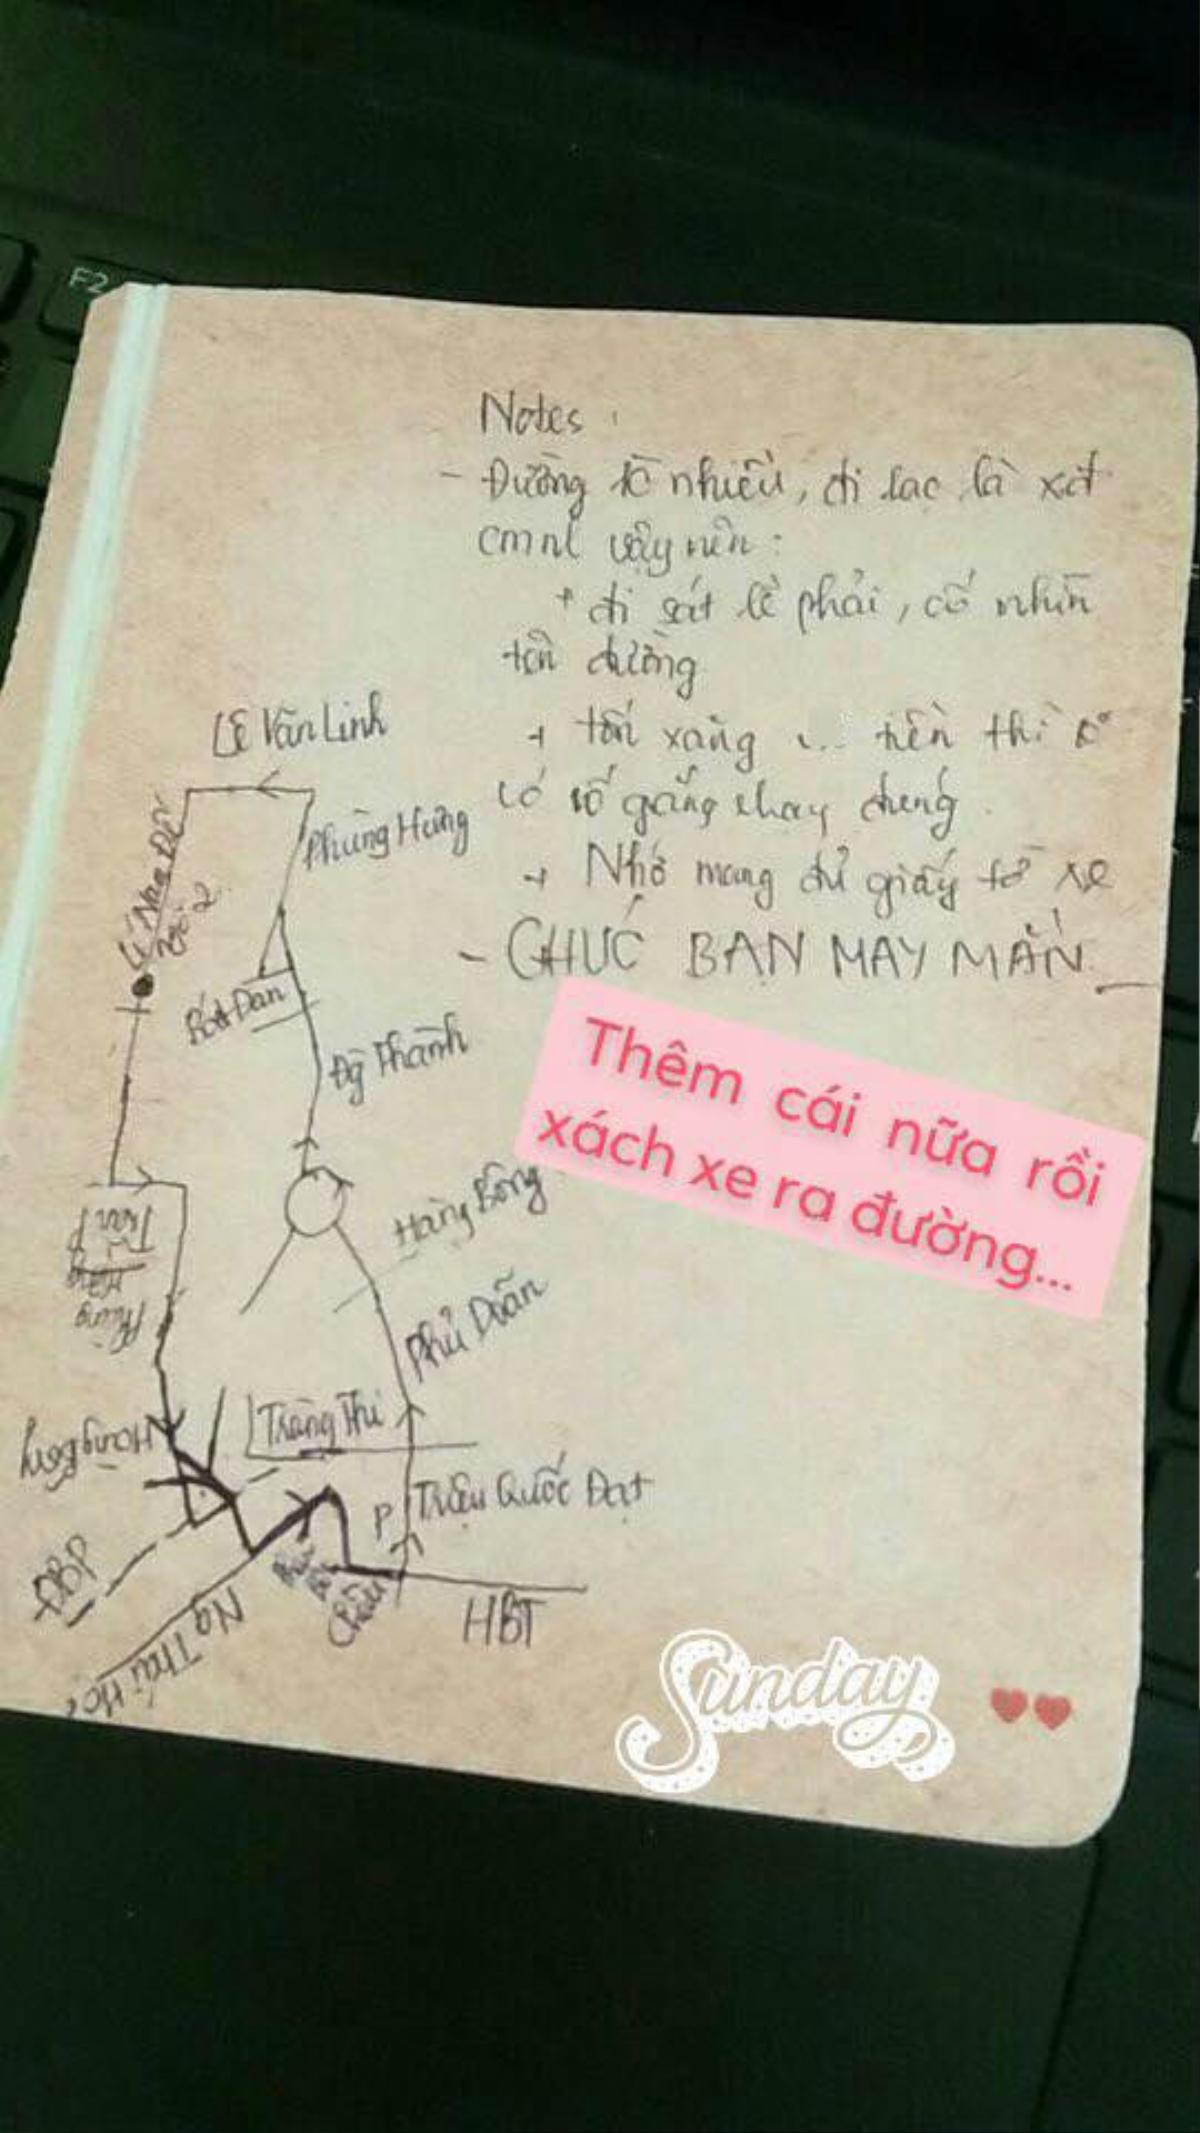 F2
Notes :
- Đường 1c nhiều, đi lạc là xịt
cmnl vậy nên :
+ đi sát lề phải, cố nhìn
tên đường
+ tốn xăng ... tiền thì
có cố gắng chạy chung
+ Nhớ mang đủ giấy tờ xe
- CHÚC BẠN MAY MẮN
Lê Văn Linh
Phùng Hưng
Lí Nam Đế
Ngõ 2
Bát Đàn
Đg Thành
Thêm cái nữa rồi
xách xe ra đường...
Hàng Bông
Trần P
Phùng
Hưng
Phủ Doãn
Tràng Thi
Hàng Bông
Triệu Quốc Đạt
P
ĐBP
Châu
HBT
Ng Thái Họ
Sunday